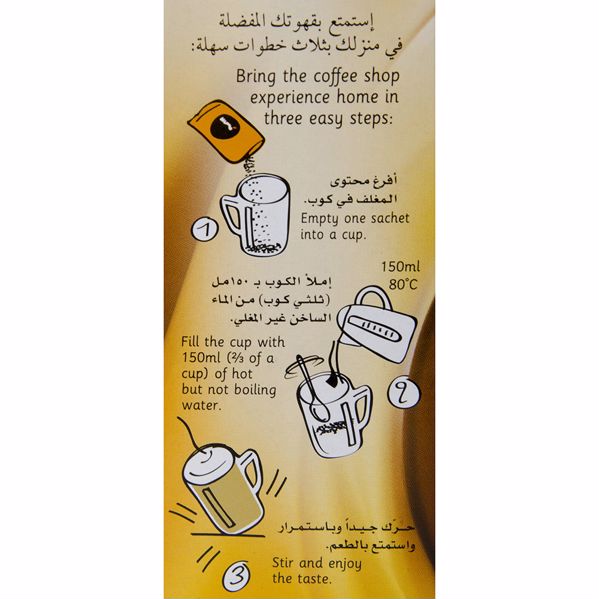 إستمتع بقهوتك المفضلة
في منزلك بثلاث خطوات سهلة:
Bring the coffee shop
experience home in
three easy steps:
أفرغ محتوى
المغلف في كوب.
Empty one sachet
into a cup.
1
150ml
80°C
إملأ الكوب بـ ١٥٠مل
(ثلثي كوب) من الماء
الساخن غير المغلي.
Fill the cup with
150ml (⅔ of a
cup) of hot
but not boiling
water.
2
حرّك جيداً وباستمرار
واستمتع بالطعم.
Stir and enjoy
the taste.
3